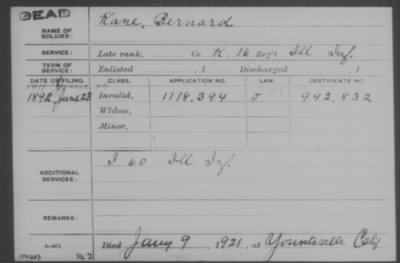 DEAD
NAME OF SOLDIER: Kane, Bernard
SERVICE: Late rank, Co. K, 16 Reg't Ill Inf.
TERM OF SERVICE: Enlisted , 1 Discharged , 1
DATE OF FILING. CLASS. APPLICATION NO. LAW. CERTIFICATE NO.
1892 June 23 Invalid, 1118,394 J 942,832
Widow,
Minor,
ADDITIONAL SERVICES: I 60 Ill Inf.
REMARKS:
6-471 Died Jany 9, 1921, at Yountville Calif